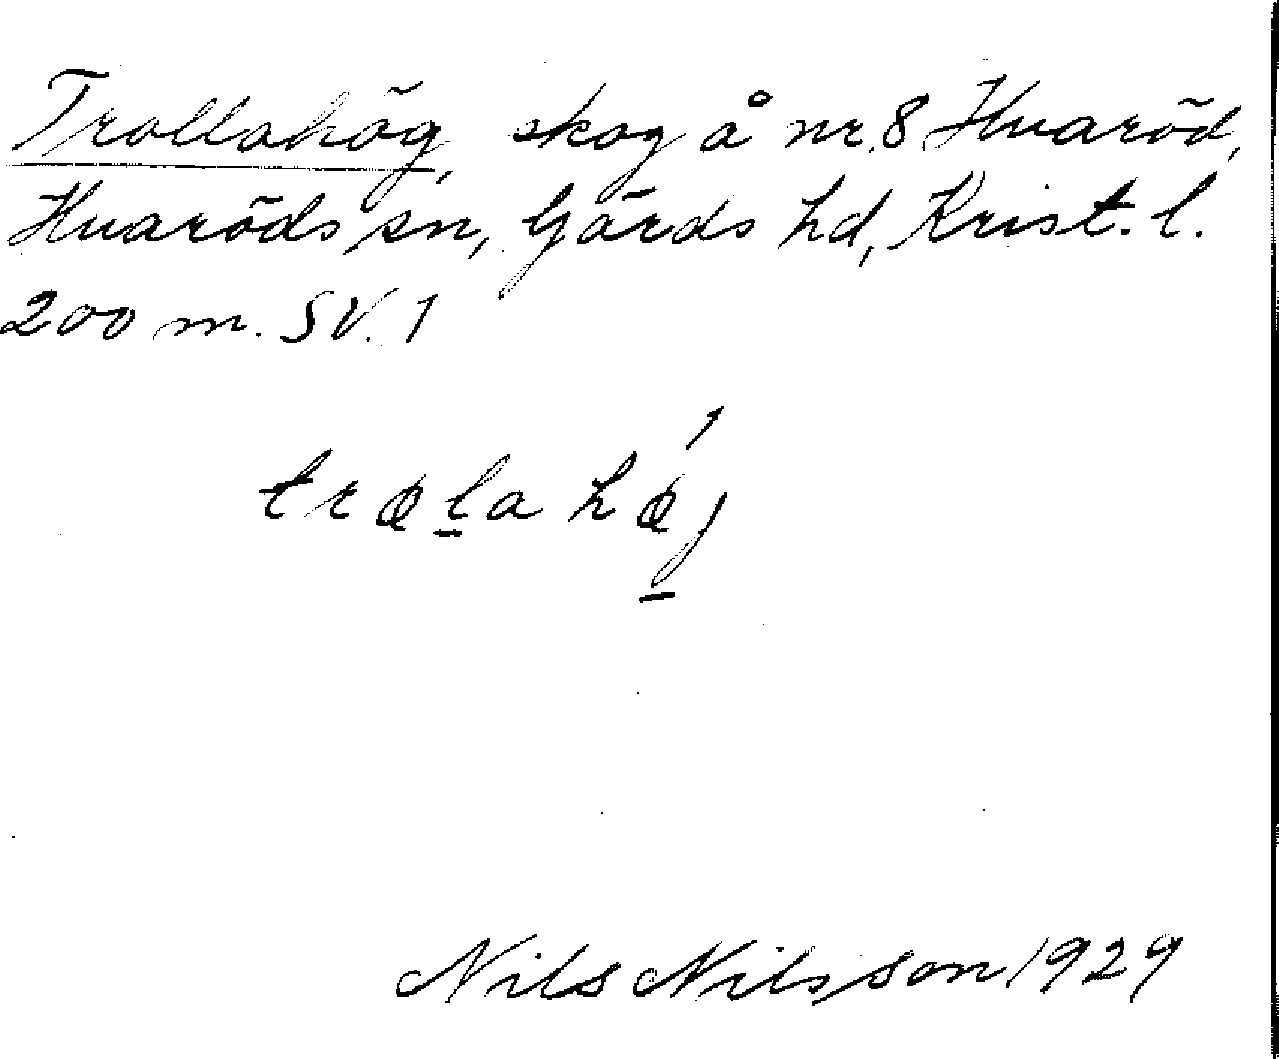 Trollahög, skog å nr. 8 Huaröd,
Huaröds sn, Gärds hd, Krist. l.
200 m. SV. 1
Nils Nilsson 1929